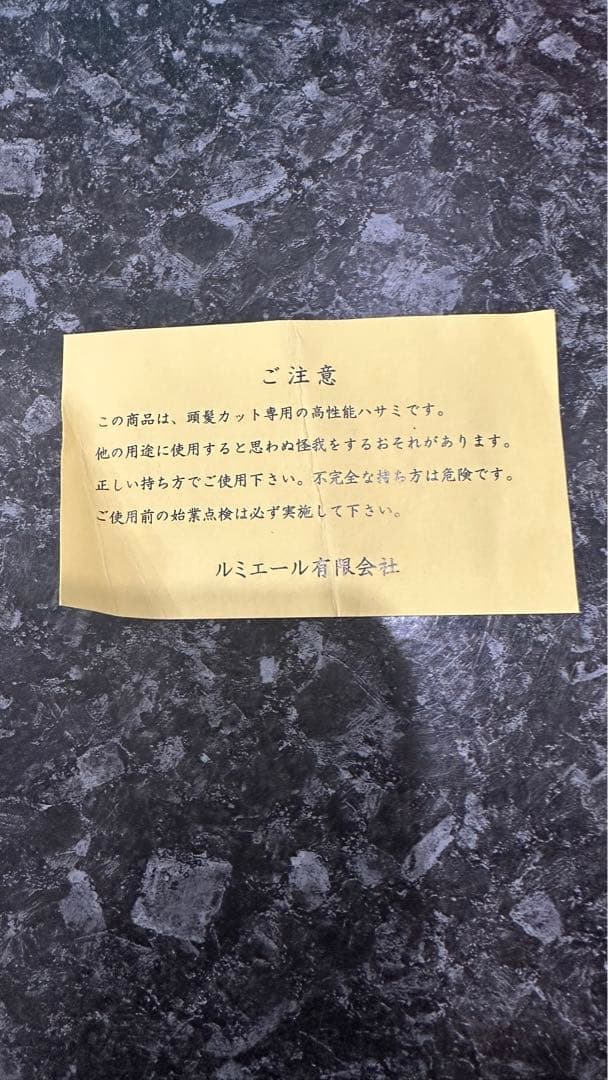 ご注意
この商品は、頭髪カット専用の高性能ハサミです。
他の用途に使用すると思わぬ怪我をするおそれがあります。
正しい持ち方でご使用下さい。不完全な持ち方は危険です。
ご使用前の始業点検は必ず実施して下さい。
ルミエール有限会社